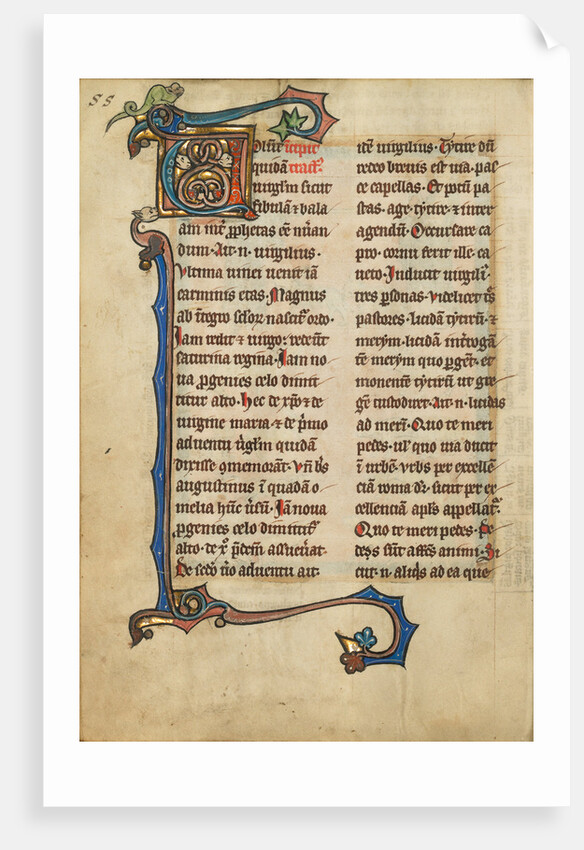 SS
Volūt īcipit
quidā tractꝰ
uirgl̃m sicut
sibullā ⁊ bala
am int̾ ꝓphetas eē nūan
dum. Ait. n. uirgilius.
Vltima uinci uenit iā
carminis etas. Magnus
ab ītegro sc̃lorꝝ nascit᷑ ordo.
Iam redit ⁊ uirgo: redeūt
saturnia regina. Iam no
ua ꝓgenies celo dimit
titur alto. hec de xp̃o ⁊ de
uirgine maria ⁊ de p̾mo
aduentu ũgl̃m quidā
dixisse ꝯmemorāt. Vñ b̃s
augustinus ī quadā o
melia hūc ũsū. Iā noua
ꝓgenies celo dimittit᷑
alto. de xp̃ p̃dc̃m asseuerat.
De sc̃do ũo aduentu ait.
itē uirgilius. Tytire dū
redeo breuis est uia. pas
ce capellas. Et potū pa
stas. age tytire. ⁊ inter
agendū. Occursare ca
pro. cornu ferit ille. ca
ueto. Inducit uirgiliꝰ.
tres ꝑsonas. videlicet tͤs
pastores. licidā tytirū. ⁊
merym. licidā int̾rogan
tē merym quo ꝑgēt. et
monentē tytirū ut gre
gē custodiret. Ait. n. licidas
ad merī. Quo te meri
pedes. ul̾ quo uia ducit
ī urbē. vrbs per excellē
ciā roma dr̃. sicut per ex
cellenciam apl̃s appellat᷑.
Quo te meri pedes. Pe
des sūt affc̃s animi. Di
cit. n. aliqͥs ad ea que